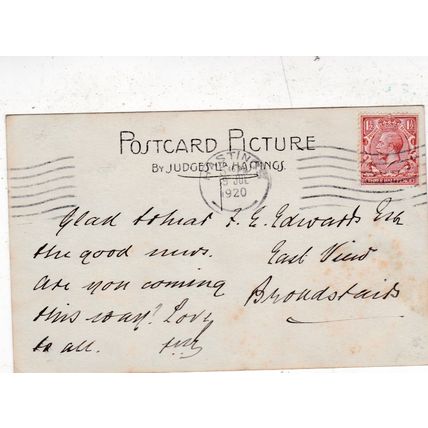 POSTCARD PICTURE
BY JUDGES LTD HASTINGS.
HASTINGS
JUL
1920
1½ 1½
Glad to hear
the good news.
Are you coming
this way? Love
to all.
F. E. Edwards Esq
East View
Broadstairs